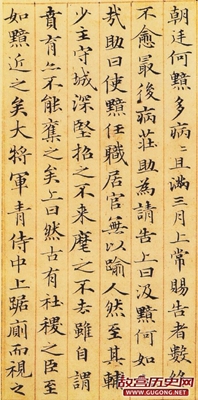 朝廷何黯多病〻且滿三月上常賜告者數終
不愈最後病莊助為請告上曰汲黯何如人
哉助曰使黯任職居官無以踰人然至其輔
少主守城深堅招之不來麾之不去雖自謂
賁育亦不能奪之矣上曰然古有社稷之臣至
如黯近之矣大將軍青侍中上踞廁而視之
故宫历史网